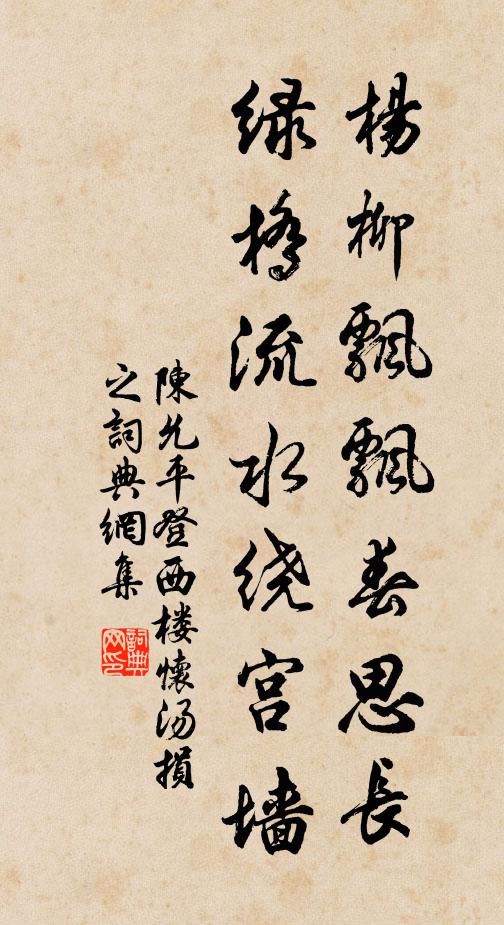 楊柳飄飄春思長
绿橋流水绕宫墙
陳允平登西楼懷汤損
之詞典網集
詞典網印